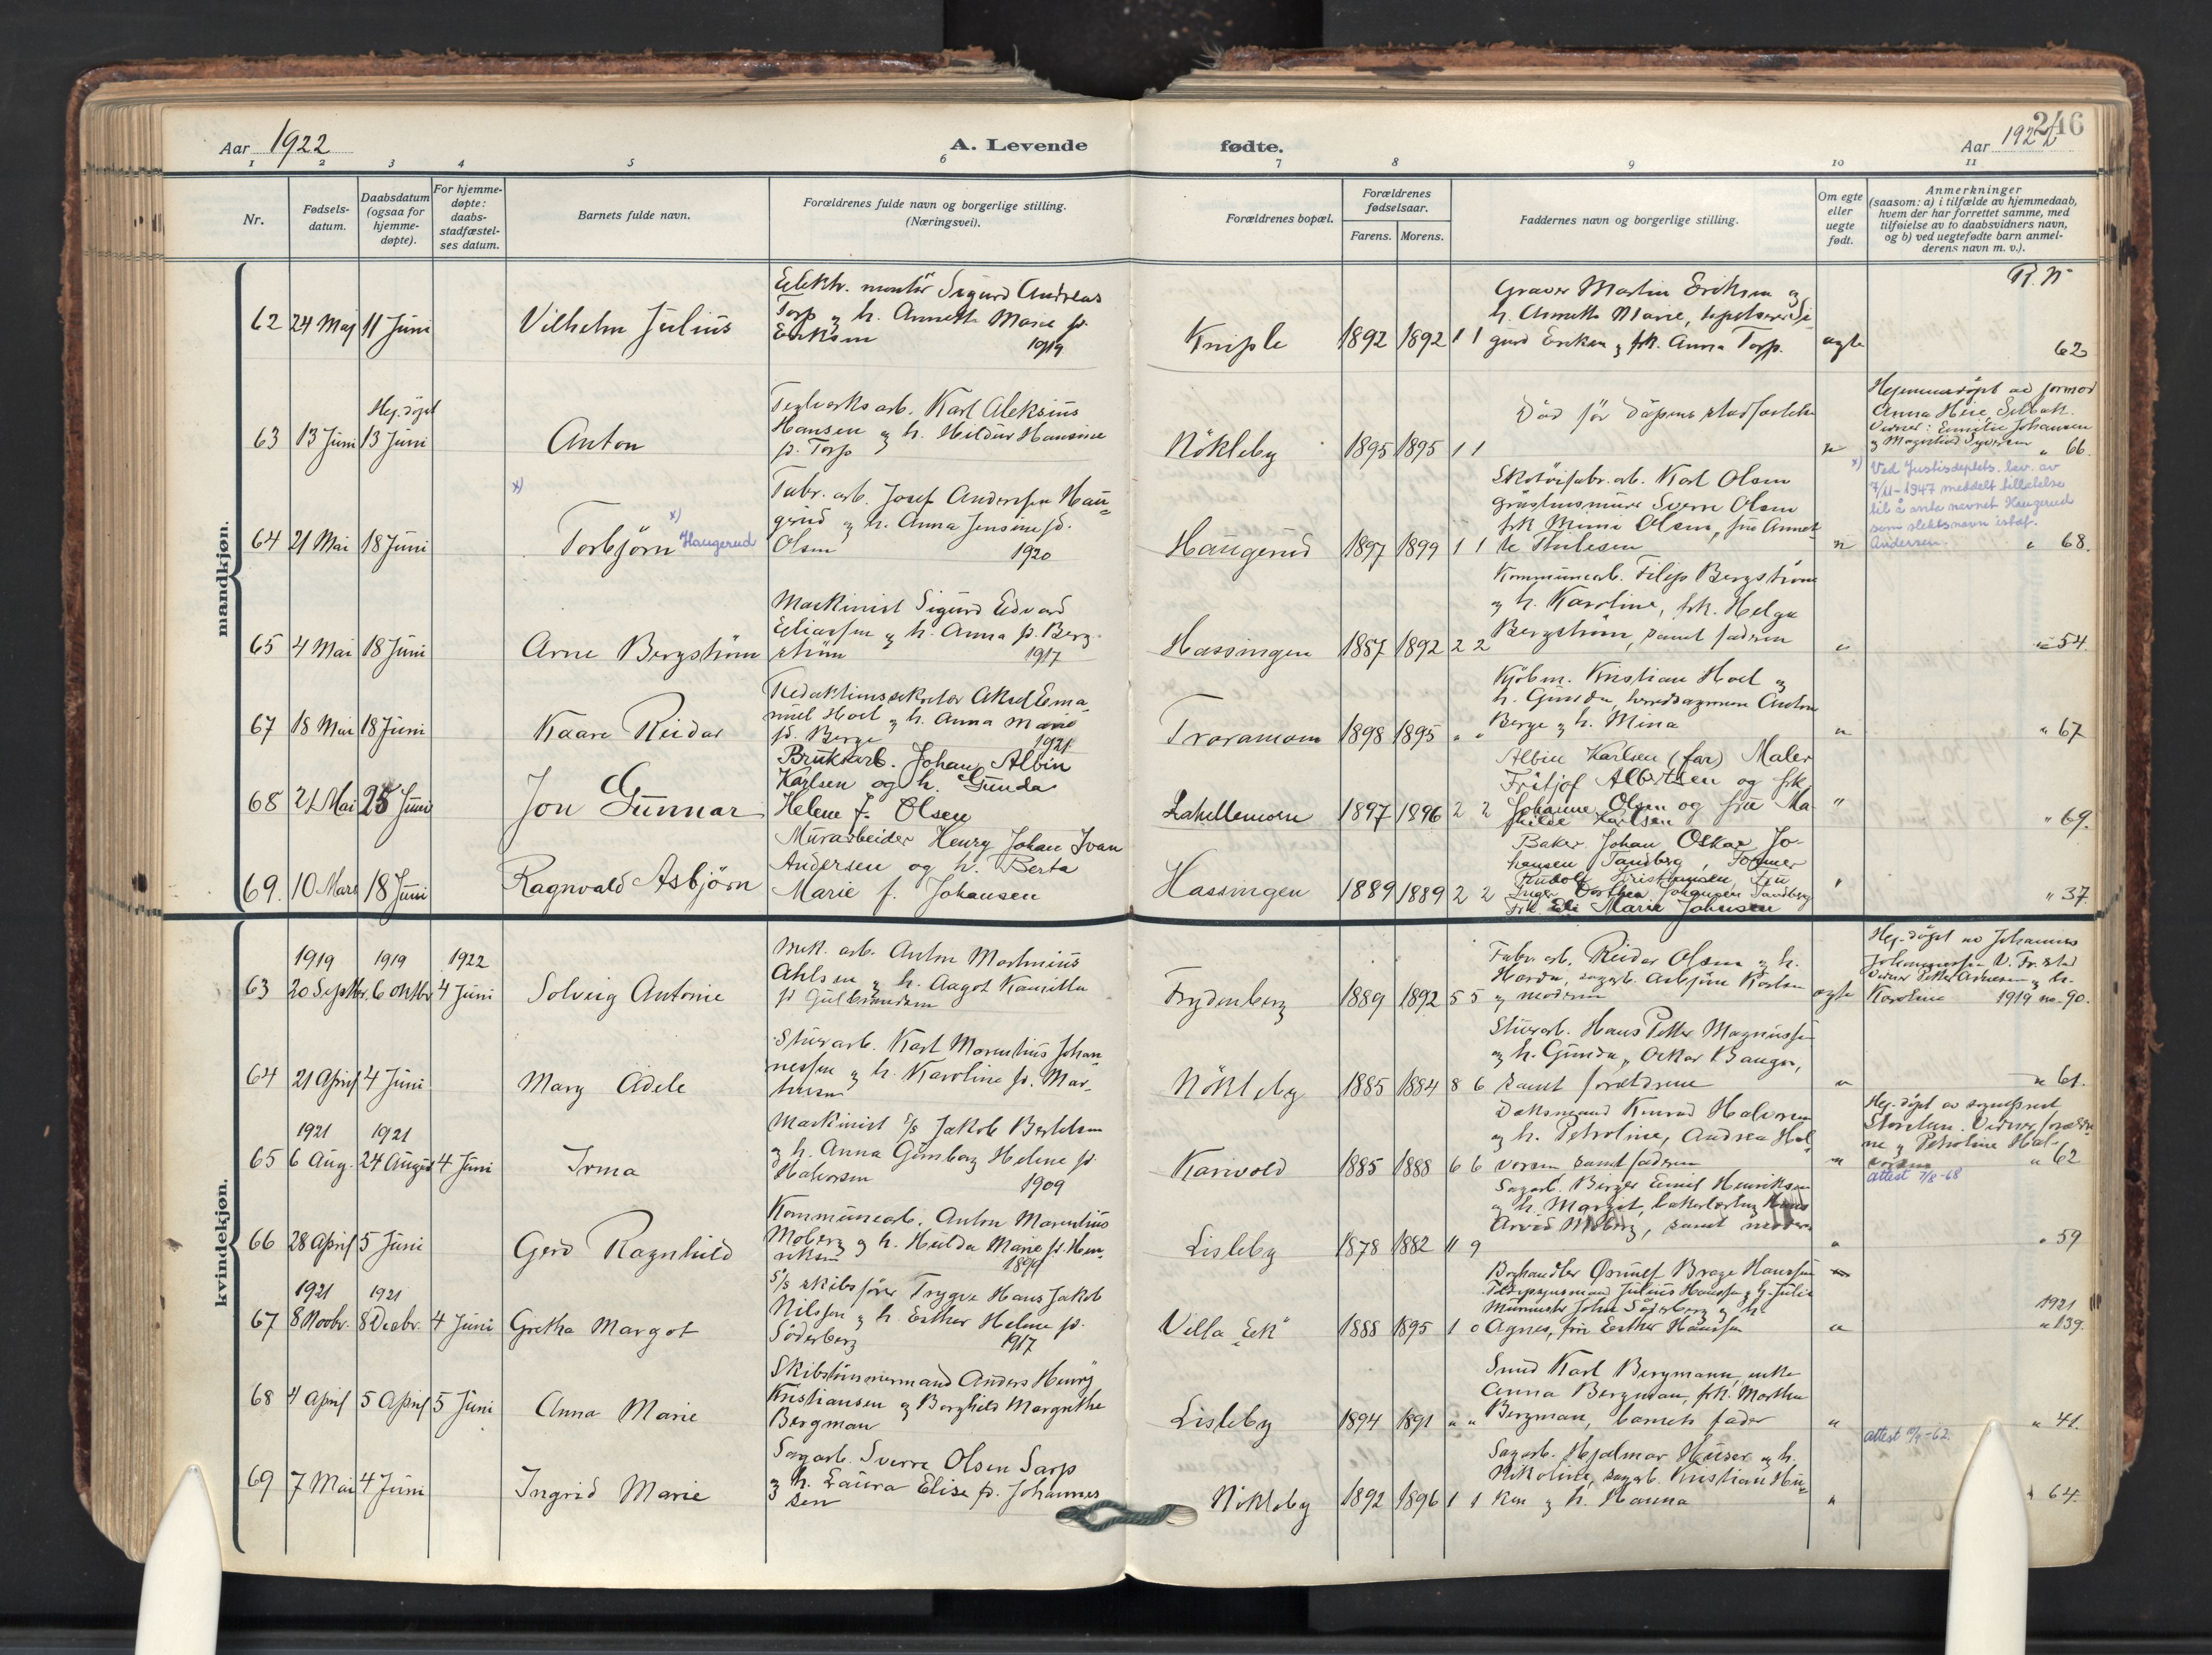 Aar 1922
A. Levende
fødte.
Aar 1922
246
1 2 3 4 5 6 7 8 9 10 11
Nr.
Fødsels-
datum.
Daabsdatum
(ogsaa for
hjemme-
døpte).
For hjemme-
døpte:
daabs-
stadfæstel-
ses datum.
Barnets fulde navn.
Forældrenes fulde navn og borgerlige stilling.
(Næringsvei).
Forældrenes bopæl.
Forældrenes
fødselsaar.
Farens. Morens.
Faddernes navn og borgerlige stilling.
Om egte
eller
uegte
født.
Anmerkninger
(saasom: a) i tilfælde av hjemmedaab,
hvem der har forrettet samme, med
tilføielse av to daabsvidners navn,
og b) ved uegtefødte barn anmel-
derens navn m. v.).
mandkjøn.
62 24 Maj 11 Juni
Vilhelm Julius
Elektr. montör Sigurd Andreas
Torp og h. Annette Marie f.
Eriksen
1919
Kniple 1892 1892 1 1
Graver Martin Eriksen og
h. Annette Marie, tapetserer Si-
gurd Eriksen og frk. Anna Torp.
egte
R. N
62
63 13 Juni
Hj. döpt
13 Juni
Anton
Teglverksarb. Karl Aleksius
Hansen og h. Hildur Hansine
f. Torp
Nökleby 1895 1895 1 1
Död för daapens stadfestelse
"
Hjemmedöpt av jormor
Anna Heie, Selbak.
Vidner: Emilie Johansen
og Magnhild Syversen " 66.
64 21 Mai 18 Juni
x)
Torbjörn Haugerud
x)
Fabr. arb. Josef Andersen Hau-
gerud og h. Anna Jensine f.
Olsen 1920
Haugerud 1897 1899 1 1
Skotöifabr. arb. Karl Olsen
gråstensmurer Sverre Olsen
frk Mimi Olsen, fru Annet-
te Thulesen
"
x) Ved Justisdeptets. bev. av
7/11-1947 meddelt tillatelse
til å anta navnet Haugerud
som slektsnavn istedf.
Andersen. " 68.
65 4 Mai 18 Juni
Arne Bergström
Maskinist Sigurd Edvard
Eliassen og h. Anna f. Berg-
ström 1917
Hassingen 1887 1892 2 2
Kommunearb. Filip Bergström
og h. Karoline, frk. Helga
Bergström, samt faderen
"
" 54.
67 18 Mai 18 Juni
Kaare Reidar
Redaktionssekretær Aksel Ema-
nuel Hoel og h. Anna Marie
f. Berge 1921
Traramoen 1898 1895 " "
Kjöbm. Kristian Hoel og
h. Gunda, herredsagronom Anton
Berge og h. Mina
"
" 67
68 21 Mai 25 Juni
Jon Gunnar
Brukkarb. Johan Albin
Karlsen og h. Gunda
Helene f. Olsen
Labellemoen 1897 1896 2 2
Albin Karlsen (far) Maler
Fritjof Albertsen og frk
Johanne Olsen og frue Ma-
thilde Karlsen
"
" 69.
69. 10 Mars 18 Juni
Ragnvald Asbjørn
Murarbeider Henry Johan Ivan
Andersen og h. Berta
Marie f. Johansen
Hassingen 1889 1889 2 2
Baker Johan Oskar Jo-
hansen Tandberg, Former
Rudolf Kristiansen, Fru
Inger Dorthea Johansen Tandberg
Frk. Eli Marie Johansen
"
" 37
kvindekjøn.
63
1919 1919 1922
20 Septbr. 6 oktbr 4 Juni
Solveig Antonie
Mek. arb. Anton Martinius
Ahlsen og h. Aagot Kamilla
f Gulbrandsen
Frydenberg 1889 1892 5 5
Fabr. arb. Reidar Olsen og h.
Harda, sagarb. Asbjörn Karlsen
og moderen
egte
Hj. döpt av Johannes
Johannessen V. Fr. stad
Vidner Petter Arnesen og h.
Karoline 1919 no. 90.
64 21 April 4 Juni
Mary Adele
Stuerarb. Karl Marentius Johan-
nessen og h. Karoline f. Mar-
thinsen
Nökleby 1885 1884 8 6
Stuerarb. Hans Petter Magnussen
og h. Gunda, Oskar Bauger,
samt forældrene
"
" 61.
65
1921 1921
6 Aug. 24 August 4 Juni
Irma
Maskinist S/S Jakob Bertelsen
og h. Anna Gunborg Helene f.
Halvorsen 1909
Karivold 1885 1888 6 6
Daksmand Konrad Halvorsen
og h. Petroline, Andrea Hal-
vorsen samt faderen
"
Hj. döpt av sogneprest
Storelun. Vidner, foreldre-
ne og Petroline Hal-
vorsen " 62
attest 7/8-68
66 28 April 5 Juni
Gerd Ragnhild
Kommunearb. Anton Marentius
Moberg og h. Hulda Marie f. Hen-
riksen 1899
Lisleby 1878 1882 11 9
Sagarb. Birger Emil Henriksen
og h. Margit, bakerlærling Hans
Arvid Moberg, samt moderen
"
" 59
67
1921 1921
8 Novbr. 8 Decbr. 4 Juni
Gretha Margot
S/S skibsförer Trygve Hans Jakob
Nilssen og h. Esther Helene f.
Söderberg 1917
Villa "Eek" 1888 1895 1 0
Boghandler Ørnulf Brage Hanssen
Julius Hanssen og h. Julie
Murmester John Söderberg og h.
Agnes, fru Esther Hanssen
"
1921
" 139.
68 4 April 5 April 5 Juni
Anna Marie
Skibstömmermand Anders Henry
Kristiansen og Borghild Margrethe
Bergman
Lisleby 1894 1891 " "
Smed Karl Bergmann, enke
Anna Bergman, frk. Martha
Bergman, barnets fader
"
" 41.
attest -62.
69 7 Mai 4 Juni
Ingrid Marie
Sagarb. Sverre Olsen Sarp
og h. Laura Elise f. Johannes
sen
Nökleby 1892 1896 1 1
Sagarb. Hjalmar Heuser og h.
Nikoline, sagarb. Kristian Hu-
ken og h. Hanna
"
" 64.